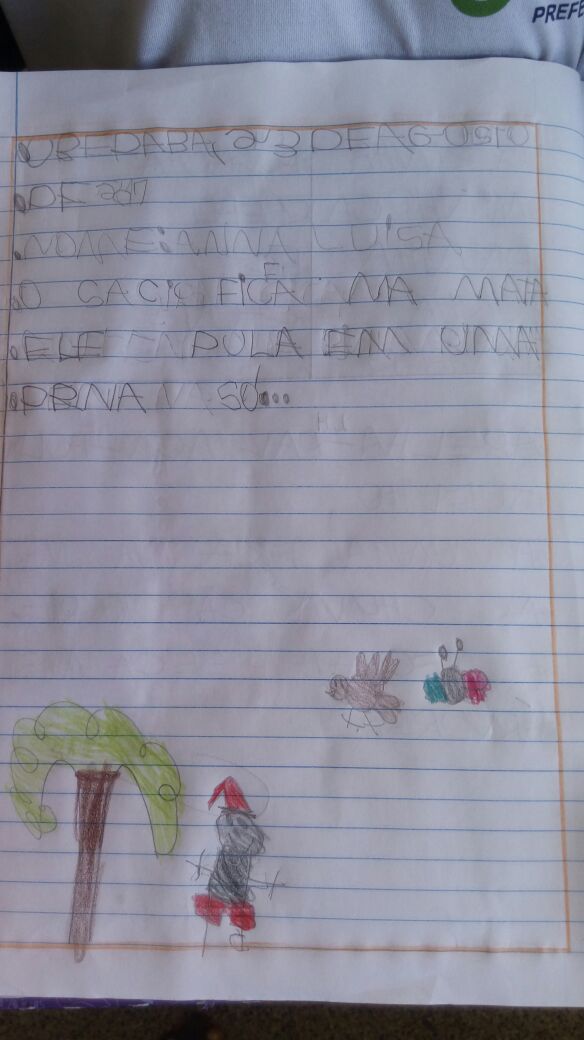 PREFE
UBEDABA, 23 DE AGOSTO
DE
NOME: ANNA LUISA
O SACI FICA NA MATA
ELE PULA EM UMA
PRNA SÓ...